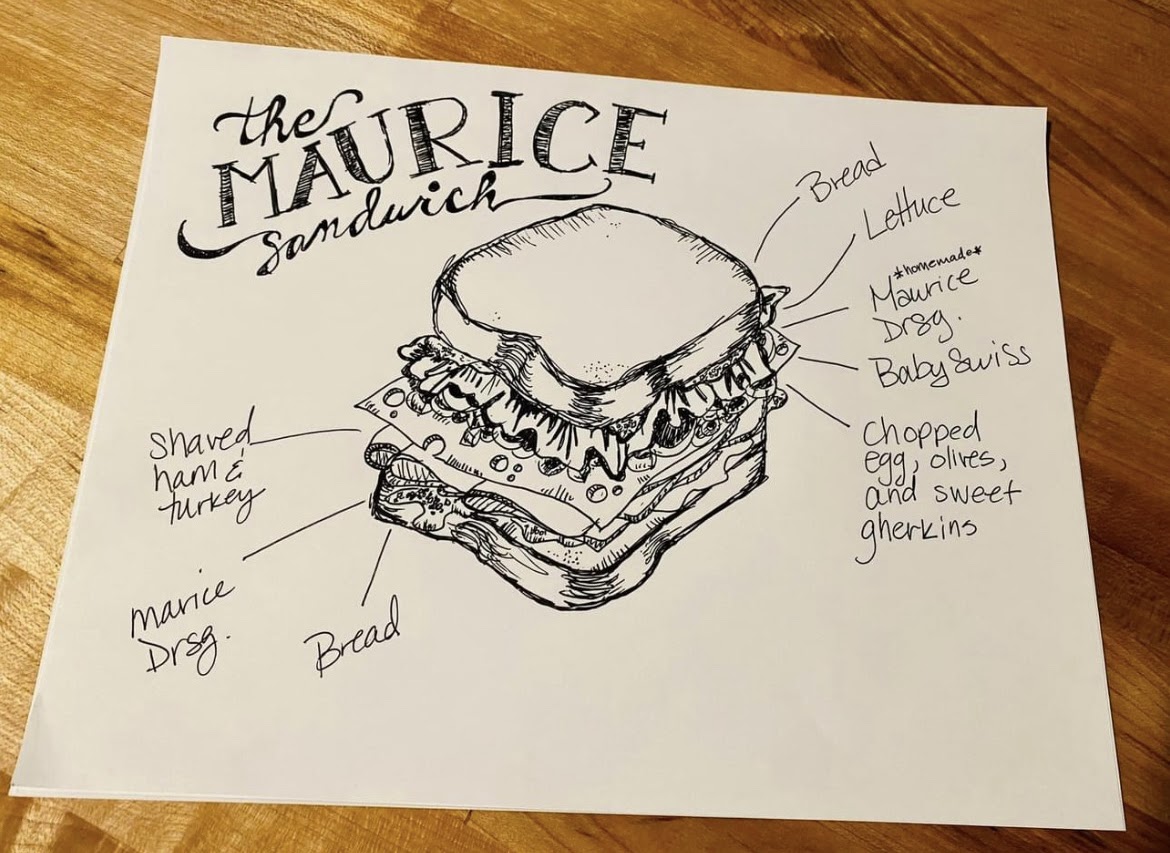 the
MAURICE
sandwich
Bread
Lettuce
*homemade*
Maurice
Drsg.
Baby Swiss
Chopped
egg, olives,
and sweet
gherkins
Shaved
ham &
turkey
Marice
Drsg.
Bread